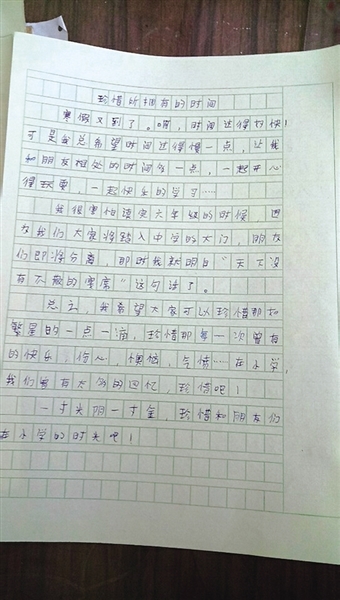 珍惜所拥有的时间
寒假又到了。嘿，时间过得好快！
可是我总希望时间过得慢一点，让我
和朋友相处的时间多一点，一起开心
得玩耍，一起快乐的学习……
我很害怕读完六年级的时候，因
为我们大家将踏入中学的大门，朋友
们即将分离，那时我就明白“天下没
有不散的宴席”这句话了。
总之，我希望大家可以珍惜那如
繁星的一点一滴，珍惜那每一次曾有
的快乐，伤心，懊恼，气愤……在小学，
我们曾有太多的回忆，珍惜吧！
一寸光阴一寸金，珍惜和朋友们
在小学的时光吧！